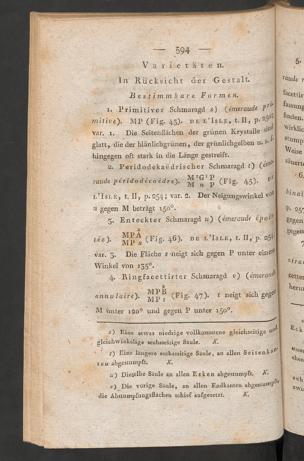 — 594 —
Varietäten.
In Rücksicht der Gestalt.
Bestimmbare Formen.
1. Primitiver Smaragd s) (émeraude pri-
mitive). MP (Fig. 45). DE L'ISLE, t. II, p.
var. 1. Die Seitenflächen der grünen Krystalle sind
glatt, die der bläulichgrünen, der grünlichgelben u. s. f.
hingegen oft stark in die Länge gestreift.
2. Peridodekaëdrischer Smaragd t) (éme-
raude péridodécaèdre). (Fig. 45). DE
L'ISLE, t. II, p. 254; var. 2. Der Neigungswinkel von
n gegen M beträgt 150°.
3. Enteckter Smaragd u) (émeraude épointée
tée). MPA
MP s (Fig. 46). DE L'ISLE, t. II, p. 254
var. 3. Die Fläche s neigt sich gegen P unter einem
Winkel von 135°.
4. Ringfacettirter Smaragd v) (émeraude
annulaire). MPB
MP t (Fig. 47). t neigt sich gegen
M unter 120° und gegen P unter 150°.
s) Eine etwas niedrige vollkommene gleichseitige und
gleichwinkelige sechsseitige Säule. K.
t) Eine längere sechsseitige Säule, an allen Seitenkan-
ten abgestumpft. K.
u) Dieselbe Säule an allen Ecken abgestumpft. K.
v) Die vorige Säule, an allen Endkanten abgestumpft
die Abstumpfungsflächen schief aufgesetzt. K.